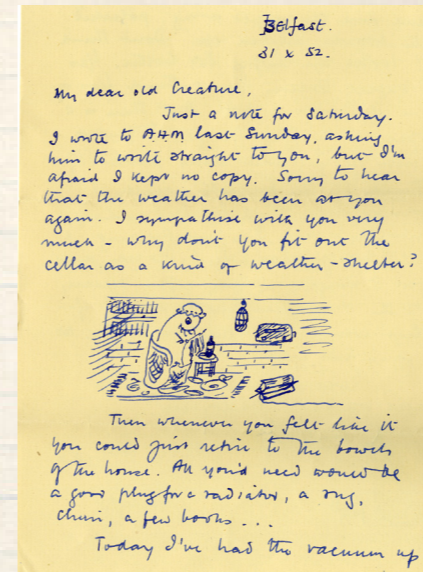 Belfast.
31 x 52.
My dear old Creature,
Just a note for Saturday.
I wrote to AHM last Sunday, asking
him to write straight to you, but I'm
afraid I kept no copy. Sorry to hear
that the weather has been at you
again. I sympathise with you very
much - why don't you fit out the
cellar as a kind of weather-shelter?
Then whenever you felt like it
you could just retire to the bowels
of the house. All you'd need would be
a good plug for a radiator, a rug,
chair, a few books...
Today I've had the vacuum up